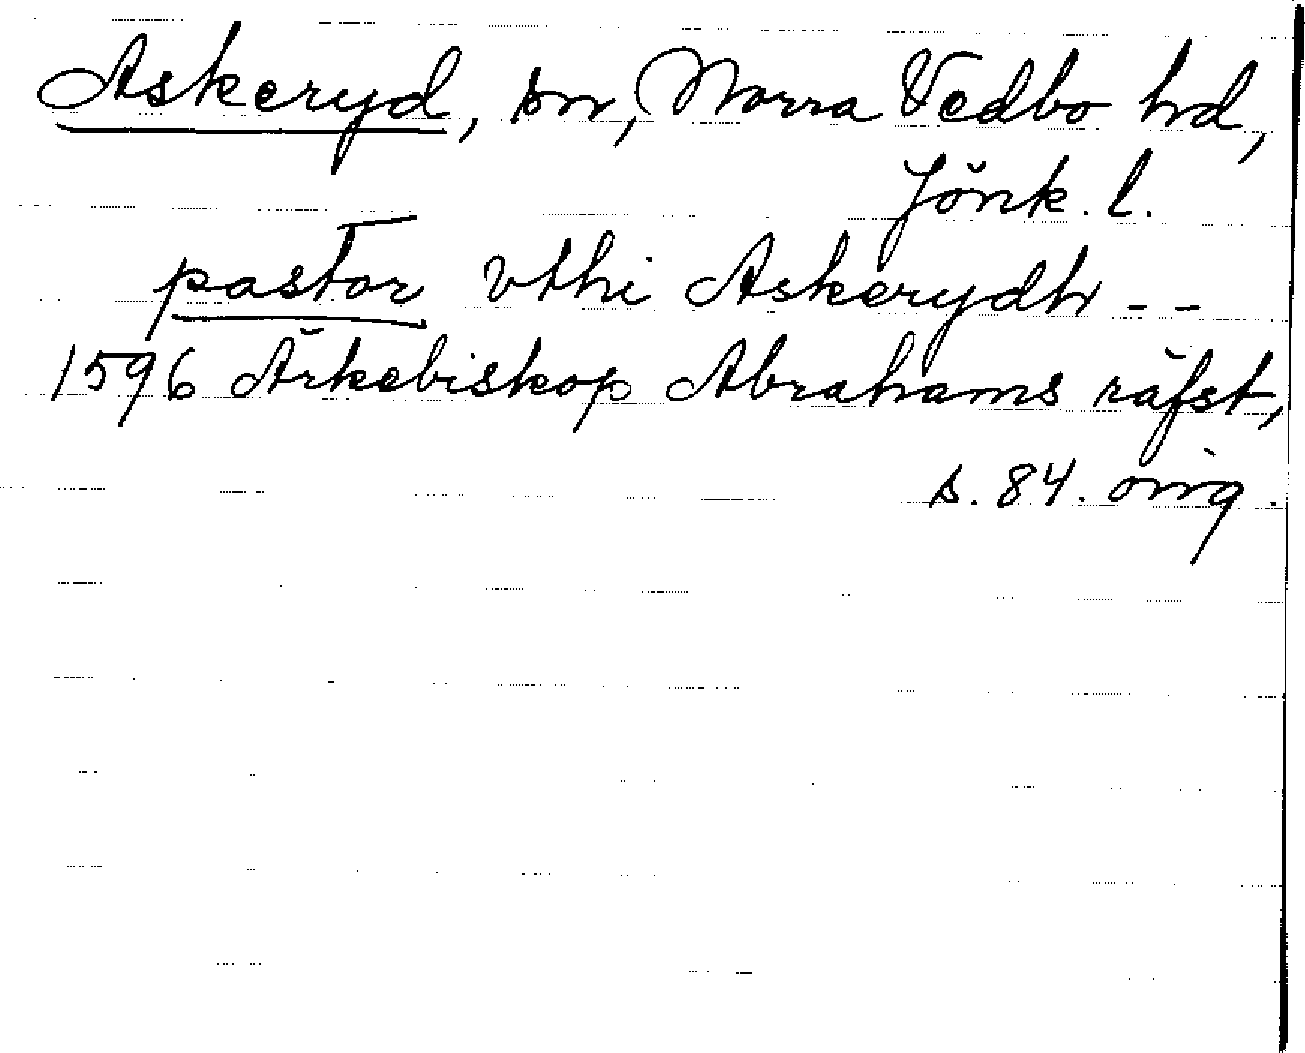 Askeryd, sn, Norra Vedbo hd,
Jönk. l.
pastor vthi Askerydh - -
1596 Ärkebiskop Abrahams räfst,
s. 84. orig.